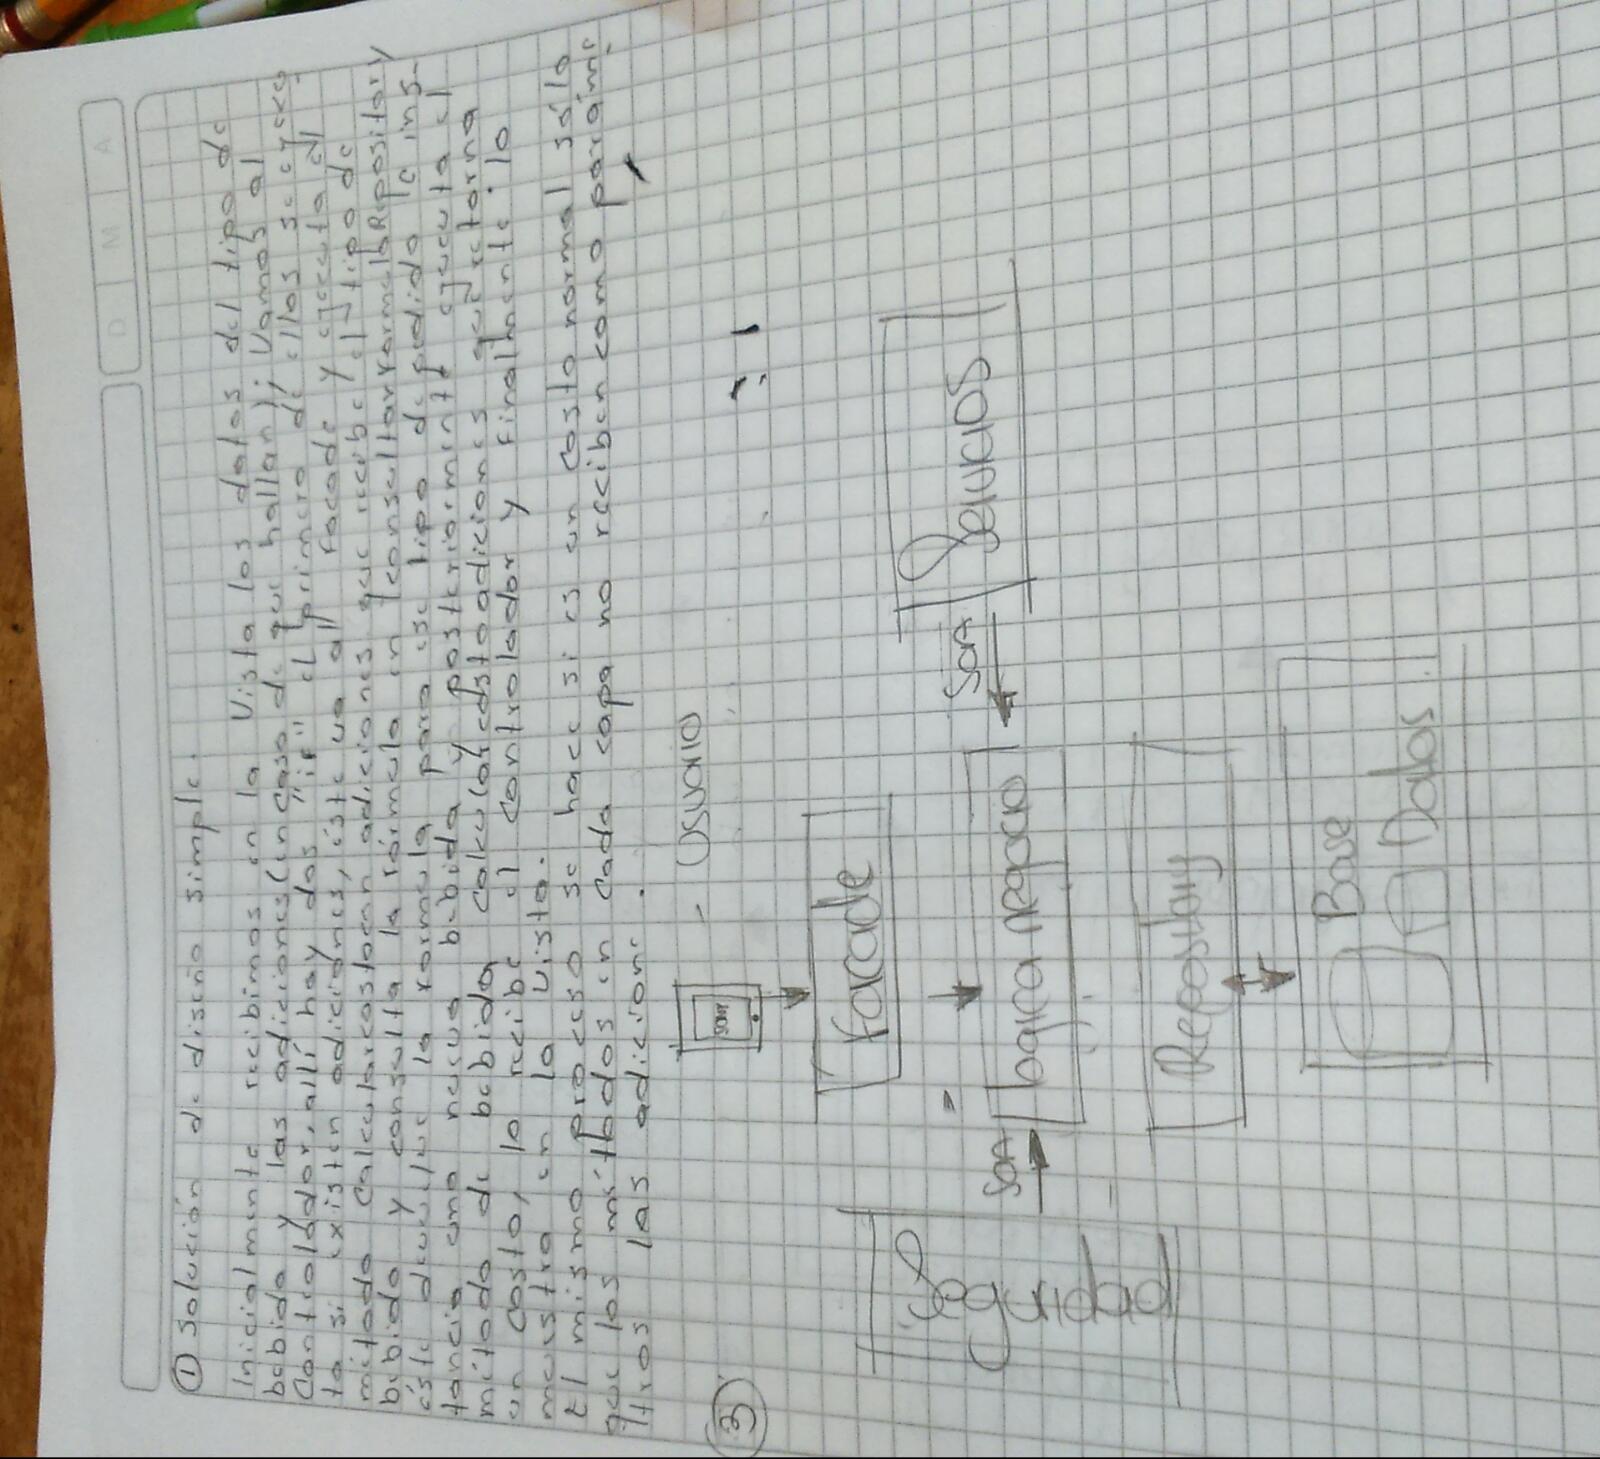 D M A
① Solución de diseño simple.
Inicialmente recibimos en la Vista los datos del tipo de
bebida y las adiciones (en caso de que hallan); Vamos al
Controlador, allí hay dos "if" el primero de ellos se ejecu-
ta si existen adiciones, éste va al Facade y ejecuta el
método Calcularcostoconadiciones que recibe el tipo de
bebida y consulta la fórmula en (consultarFormulaRepository
éste devuelve la formula para ese tipo de pedido le ins-
tancia una nueva bebida y posteriormente ejecuta el
método de bebida calcularcostoadiciones que retorna
un Costo, lo recibe el Controlador y finalmente lo
muestra en la vista.
El mismo proceso se hace si es un Costo normal sólo
que los métodos en Cada capa no reciben como paráme-
tros las adicione.
③
USUARIO
SONY
Facade
Seguridad
SOA
logica negocio
SOA
Servicios
Repository
Base
Datos